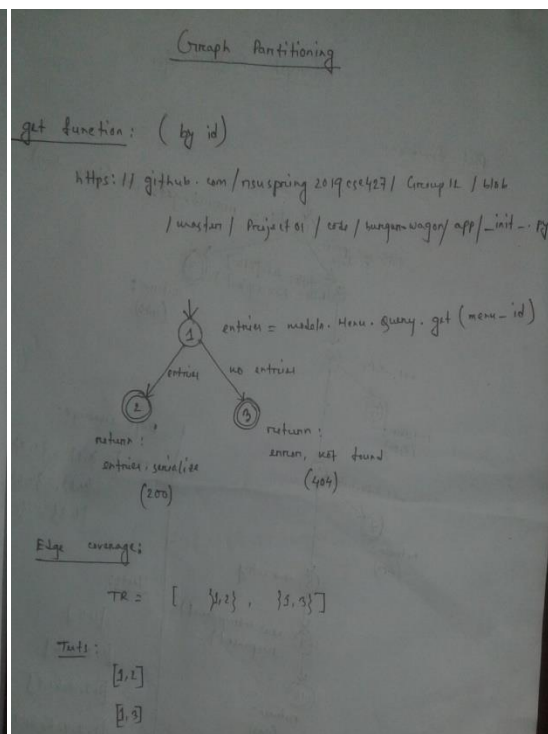 Graph Partitioning
get function: (by id)
https://github.com/nsuspring2019cse427/Group12/blob
/master/Project01/code/hunger-wagon/app/_init_.py
1
entries = models.Menu.Query.get(menu_id)
entries
no entries
2
3
return:
entries.serialize
(200)
return:
error, not found
(404)
Edge coverage:
TR = [ {1,2}, {1,3}]
Tests:
[1,2]
[1,3]